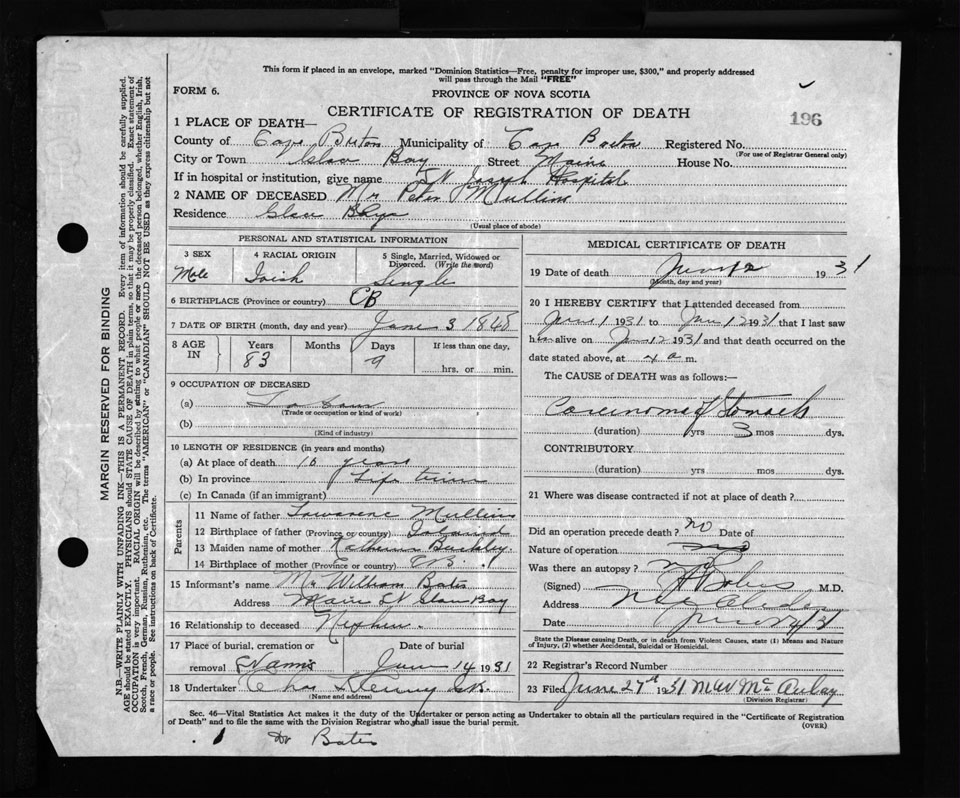 This form if placed in an envelope, marked "Dominion Statistics—Free, penalty for improper use, $300," and properly addressed
will pass through the Mail "FREE"
FORM 6.
PROVINCE OF NOVA SCOTIA
196
CERTIFICATE OF REGISTRATION OF DEATH
1 PLACE OF DEATH—
County of Cape Breton Municipality of Cape Breton Registered No.
(For use of Registrar General only)
City or Town Glace Bay Street Maine House No.
If in hospital or institution, give name St Joseph Hospital
2 NAME OF DECEASED Mr Peter Mullins
Residence Glace Bay
(Usual place of abode)
PERSONAL AND STATISTICAL INFORMATION
3 SEX
4 RACIAL ORIGIN
5 Single, Married, Widowed or
Divorced. (Write the word)
Male Irish Single
6 BIRTHPLACE (Province or country) CB
7 DATE OF BIRTH (month, day and year) June 3 1848
8 AGE IN
Years Months Days If less than one day,
83 9 hrs. or min.
9 OCCUPATION OF DECEASED
(a)
(Trade or occupation or kind of work)
(b)
(Kind of industry)
10 LENGTH OF RESIDENCE (in years and months)
(a) At place of death years
(b) In province Life time
(c) In Canada (if an immigrant)
Parents
11 Name of father Lawarene Mullins
12 Birthplace of father (Province or country) Ireland
13 Maiden name of mother Buckley.
14 Birthplace of mother (Province or country) C.B.
15 Informant's name Mr William Bates
Address Maine St Glace Bay
16 Relationship to deceased Nephew.
17 Place of burial, cremation or
removal St Anns
Date of burial
June 14 1931
18 Undertaker Chas
(Name and address)
MEDICAL CERTIFICATE OF DEATH
19 Date of death June 12 1931
(Month, day and year)
20 I HEREBY CERTIFY that I attended deceased from
June 1 1931 to June 12 1931 that I last saw
him alive on June 12 1931 and that death occurred on the
date stated above, at 4 a m.
The CAUSE of DEATH was as follows:—
Carcinoma of Stomach
(duration) yrs 3 mos dys.
CONTRIBUTORY
(duration) yrs mos dys.
21 Where was disease contracted if not at place of death?
Did an operation precede death? no Date of
Nature of operation no
Was there an autopsy? no
(Signed) M.D.
Address
Date
State the Disease causing Death, or in death from Violent Causes, state (1) Means and Nature
of Injury, (2) whether Accidental, Suicidal or Homicidal.
22 Registrar's Record Number
23 Filed June 27th 1931 M W McAulay
(Division Registrar)
Sec. 46—Vital Statistics Act makes it the duty of the Undertaker or person acting as Undertaker to obtain all the particulars required in the "Certificate of Registration
of Death" and to file the same with the Division Registrar who shall issue the burial permit.
(OVER)
Dr Bates
MARGIN RESERVED FOR BINDING
N.B.—WRITE PLAINLY WITH UNFADING INK—THIS IS A PERMANENT RECORD. Every item of information should be carefully supplied.
AGE should be stated EXACTLY. PHYSICIANS should STATE CAUSE OF DEATH in plain terms, so that it may be properly classified. Exact statement of
OCCUPATION is very important. RACIAL ORIGIN will be described by stating to what people or race the deceased person belonged, whether English, Irish,
Scotch, French, German, Russian, Ruthenian, etc. The terms "AMERICAN" or "CANADIAN" SHOULD NOT BE USED as they express citizenship but not
a race or people. See instructions on back of Certificate.